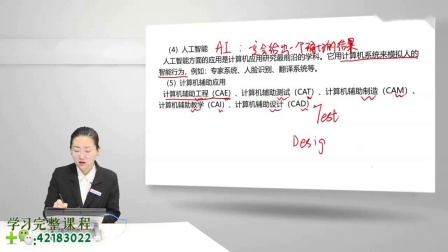 (4) 人工智能 AI：它会给出一个确切的结果
人工智能方面的应用是计算机应用研究最前沿的学科。它用计算机系统来模拟人的
智能行为，例如：专家系统、人脸识别、翻译系统等。
(5) 计算机辅助应用
计算机辅助工程（CAE）、计算机辅助测试（CAT）、计算机辅助制造（CAM）、
计算机辅助教学（CAI）、计算机辅助设计（CAD）
Test
Desig
学习完整课程
:42183022